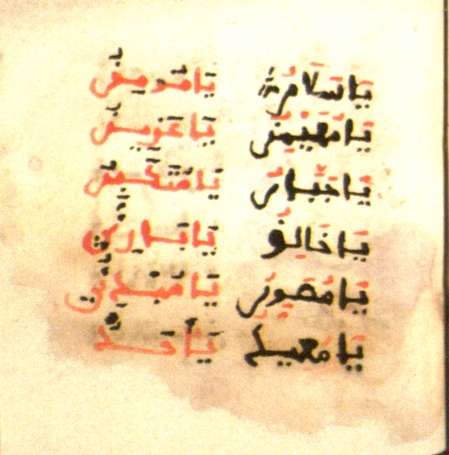 يَا سَلَامُ يَا مُومِنُ
يَا مُهَيْمِنُ يَا عَزِيزُ
يَا جَبَّارُ يَا مُتَكَبِّرُ
يَا خَالِقُ يَا بَارِئُ
يَا مُصَوِّرُ يَا مُبْدِئُ
يَا مُعِيدُ يَا أَحَدُ